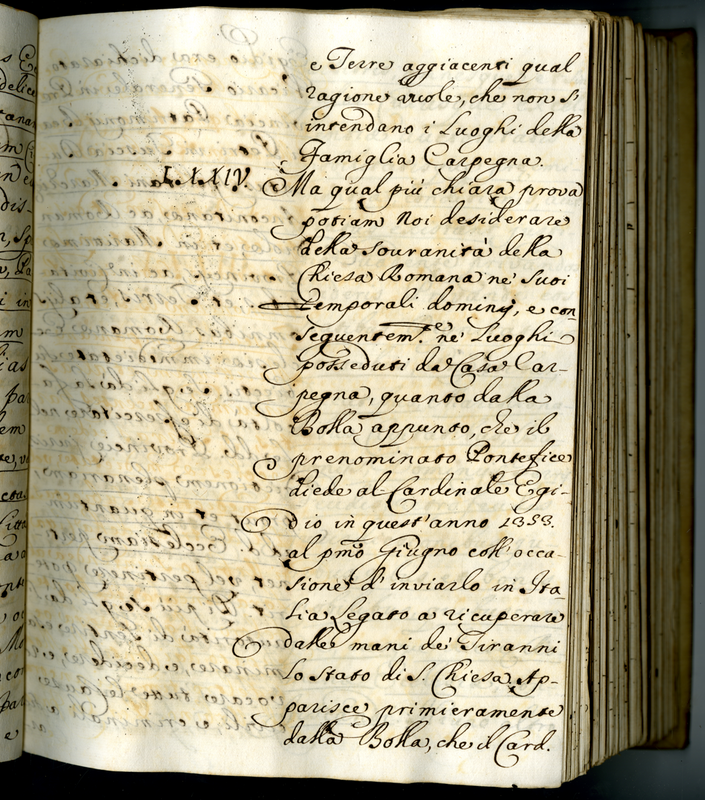 e Terre aggiacenti qual
ragione vuole, che non s'
intendano i Luoghi della
Famiglia Carpegna.
LXXIV. Ma qual più chiara prova
potiam Noi desiderare
della souranità della
Chiesa Romana ne' suoi
temporali dominij, e con
seguentem.e ne' Luoghi
posseduti da Casa Car-
pegna, quanto dalla
Bolla appunto, che il
prenominato Pontefice
diede al Cardinale Egi-
dio in quest'anno 1353.
al pmo Giugno coll'occa-
sione d'inviarlo in Ita-
lia Legato a ricuperare
dalle mani de' Tiranni
lo Stato di S. Chiesa. Ap-
parisce primieramente
dalla Bolla, che il Card.